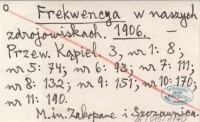 Frekwencya w naszych
zdrojowiskach. 1906. —
Przew. Kąpiel. 3, nr 1: 8;
nr 5: 74; nr 6: 93; nr 7: 111;
nr 8: 132; nr 9: 151; nr 10: 170;
nr 11: 190.
M. in. Zakopane i Szczawnica.